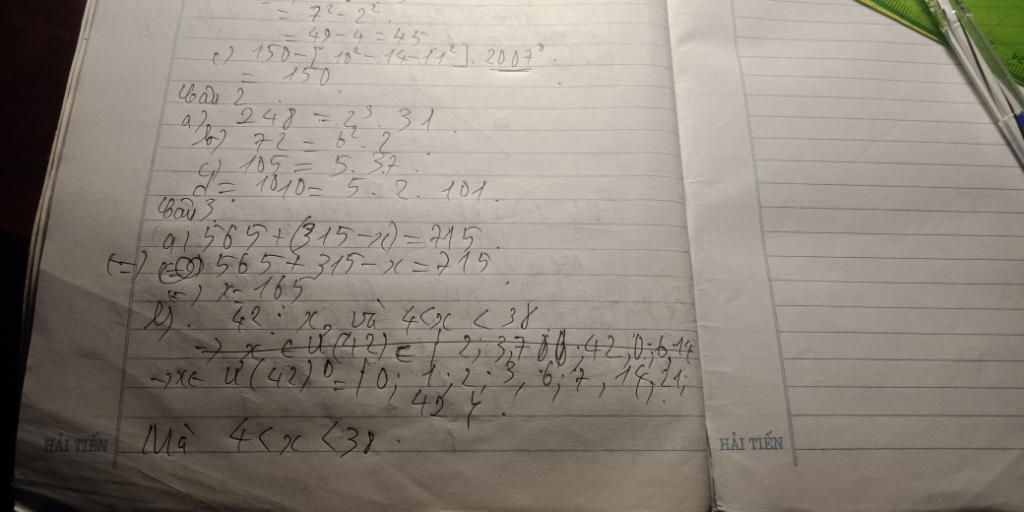 = 7² - 2².
= 49 - 4 = 45
c) 150 - [10² - 14 - 11²]. 2007⁰.
= 150
Câu 2
a) 248 = 2³. 31.
b) 72 = 6². 2
c) 105 = 5. 37.
d = 1010 = 5. 2. 101.
Câu 3.
a) 565 + (315 - x) = 715.
(=) 565 + 315 - x = 715
=) x = 165
b). 42 ⋮ x, và 4 < x < 38
→ x ∈ Ư(42) ∈ { 2; 3, 7 42, 0; 6, 14
→ x ∈ Ư(42) = { 0; 1; 2; 3, 6; 7, 14; 21;
42 }.
Mà 4 < x < 38.
HẢI TIẾN
HẢI TIẾN